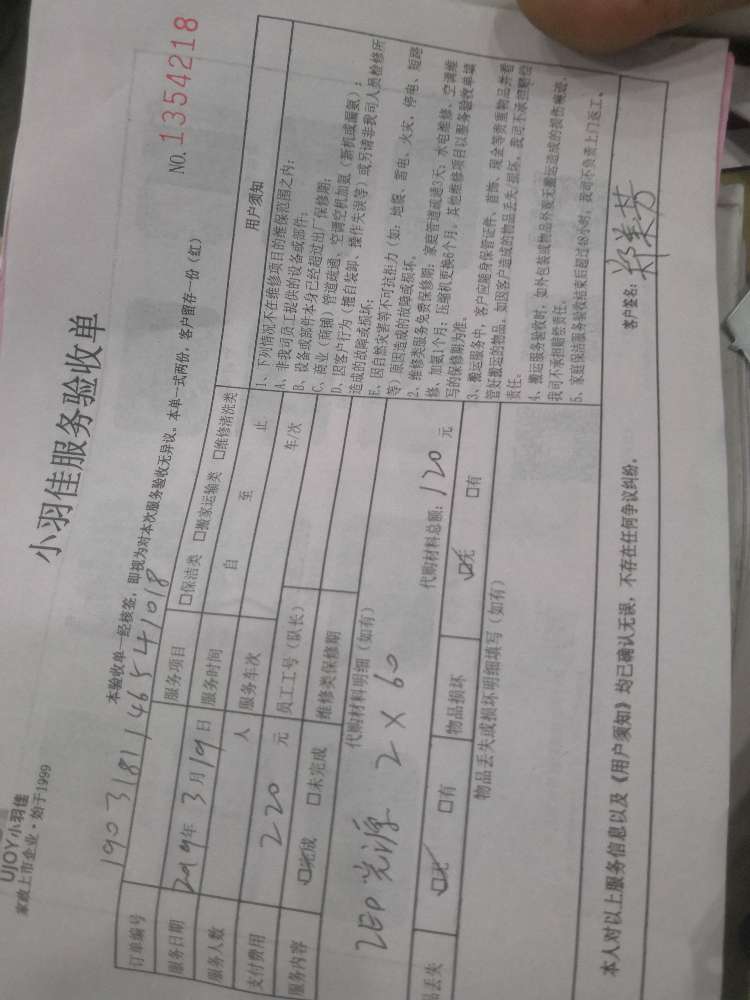 UJOY小羽佳
家政上市企业·始于1999
小羽佳服务验收单
NO.1354218
本验收单一经核签，即视为对本次服务验收无异议。本单一式两份，客户留存一份（红）
订单编号 1903181146541018
服务日期 2019年3月19日 服务项目 □保洁类 □搬家运输类 □维修清洗类
服务人数 人 服务时间 自 至 止
支付费用 220 元 服务车次 车/次
服务内容 ☑完成 □未完成 员工工号（队长）
维修类保修期
代购材料明细（如有）
LED光源 2×60
代购材料总额：120 元
品丢失 ☑无 □有 物品损坏 ☑无 □有
物品丢失或损坏明细填写（如有）
用户须知
1、下列情况不在维修项目的维保范围之内：
A、非我司员工提供的设备或部件；
B、设备或部件本身已经超过出厂保修期；
C、商业（商铺）管道疏通、空调空机加氨（新机或漏氨）；
D、因客户行为（擅自装卸、操作失误等）或另请非我司人员检修所
造成的故障或损坏；
E、因自然灾害等不可抗拒力（如：地震、雷电、火灾、停电、短路
等）原因造成的故障或损坏。
2、维修类服务免费保修期：家庭管道疏通3天；水电维修、空调维
修、加氨1个月；压缩机更换6个月。其他维修项目以服务验收单填
写的保修期为准。
3、搬运服务中，客户应随身保管证件、首饰、现金等贵重物品并看
管好搬运的物品，如因客户造成的物品丢失/损坏，我司不承担赔偿
责任。
4、搬运服务验收时，如外包装或物品外观无搬运造成的损伤痕迹，
我司不承担赔偿责任。
5、家庭保洁服务验收结束后超过48小时，我司不负责上门返工。
本人对以上服务信息以及《用户须知》均已确认无误，不存在任何争议纠纷。
客户签名：郑美芳